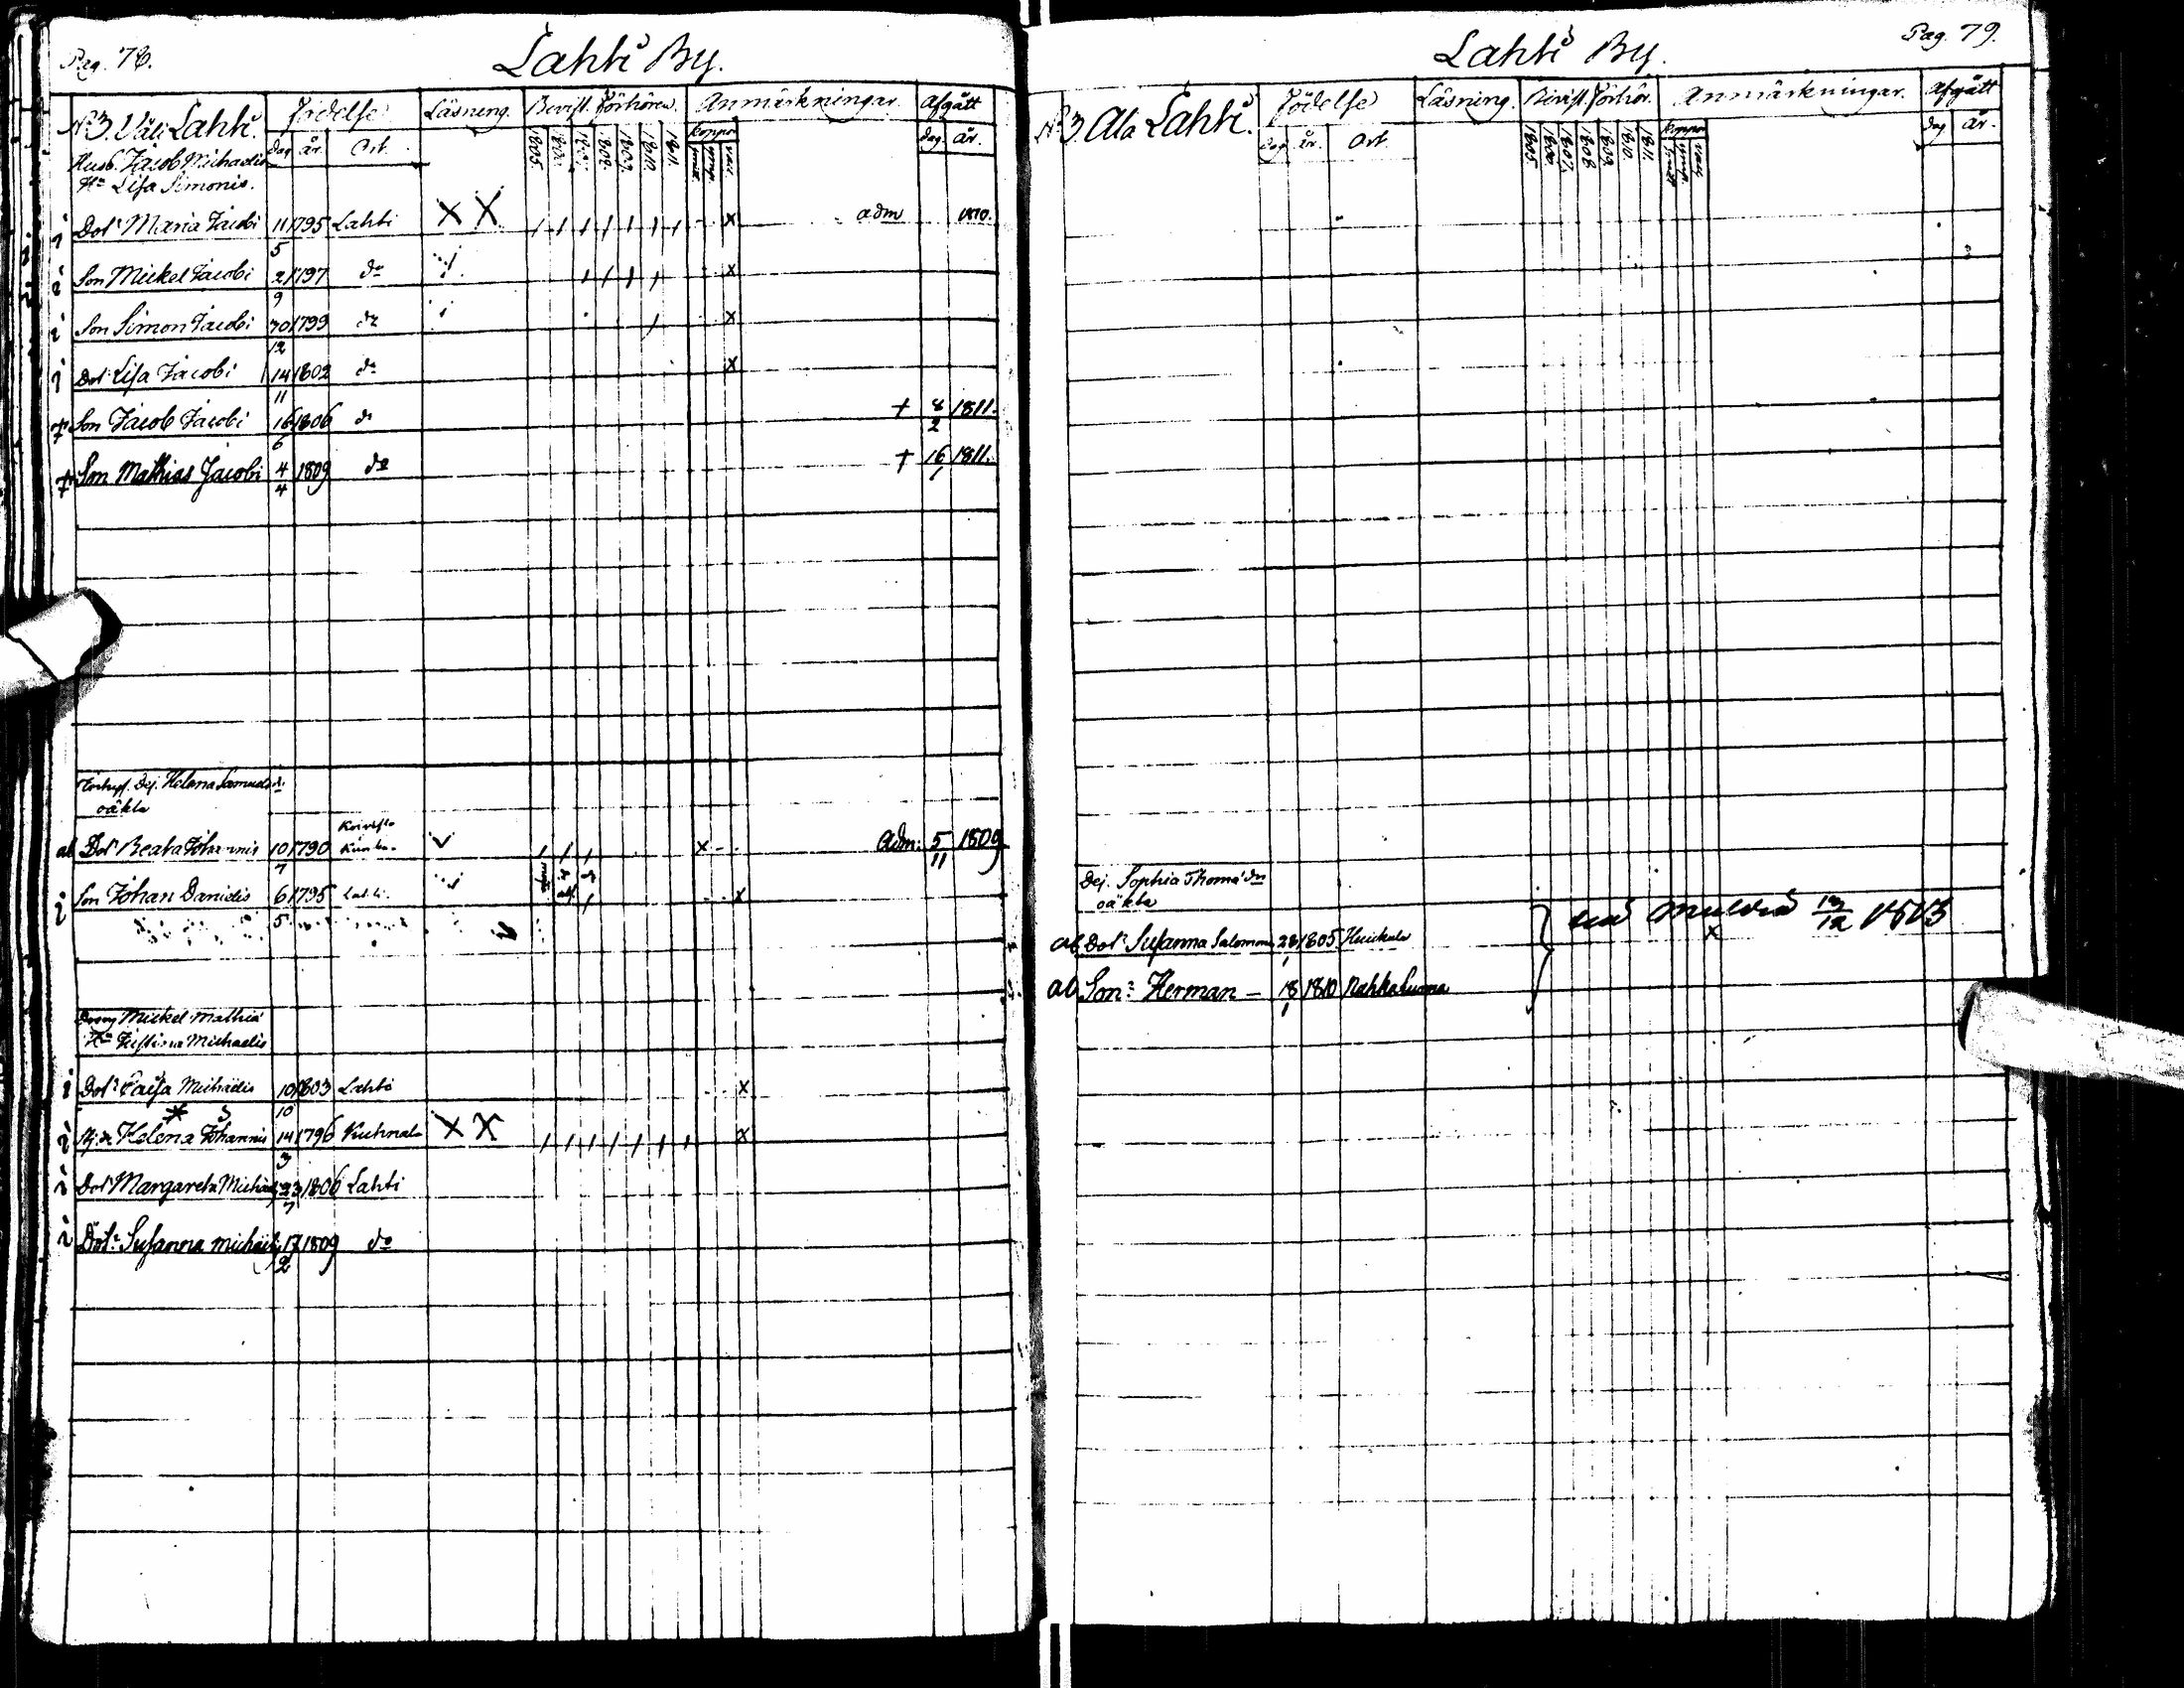 Pag. 78.
Lahti By.
No 3. Väli Lahti.
Födelse
Läsning.
Bevist. Förhören.
Anmärkningar.
Afgått
dag år. Ort.
1805. 1806. 1807. 1808. 1809. 1810. 1811.
Koppor
dag. år.
Husb. Jacob Michaelis
Hu Lisa Simonis.
i Dotr Maria Jacobi 11/5 1795 Lahti X X x adm 1810.
i Son Mickel Jacobi 2/9 1797 do x
i Son Simon Jacobi 30/12 1799 do x
i Dotr Lisa Jacobi 14/11 1802 do x
† Son Jacob Jacobi 16/6 1806 do † 8/2 1811.
† Son Mathias Jacobi 4/4 1809 do † 16/1 1811.
Dej. Helena Samuels dr
oäkta
ab Dotr Beata Johannis 10/7 1790 x adm: 5/11 1809
i Son Johan Danielis 6/5 1795 Lahti. x
Dräng Mickel Mathiæ
Hu Justina Michaelis
i Dotr Caisa Michaelis 10/10 1803 Lahti x
i Helena Johannis 14/3 1796 Kuhnala X X x
i Dotr Margareta Michaelis 23/7 1806 Lahti
i Dotr Susanna Michaelis 17/2 1809 do
Pag. 79.
Lahti By.
No 3. Ala Lahti.
Födelse
Läsning.
Bevist. Förhör.
Anmärkningar.
Afgått
dag år. Ort
1805. 1806. 1807. 1808. 1809. 1810. 1811.
Koppor
dag år.
Dej. Sophia Thomæ dr
oäkta
ab Dotr Susanna Salomonis 28/1 1805 Huickala x
ab Son: Herman – 18/1 1810